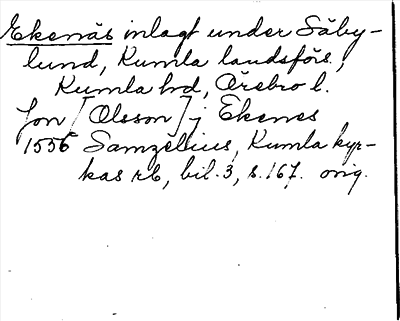 Ekenäs inlagt under Säby-
lund, Kumla landsförs.,
Kumla hd, Örebro l.
Jon [Olsson] j Ekenes
1556 Samzelius, Kumla kyr-
kas rb, bil. 3, s. 167. orig.